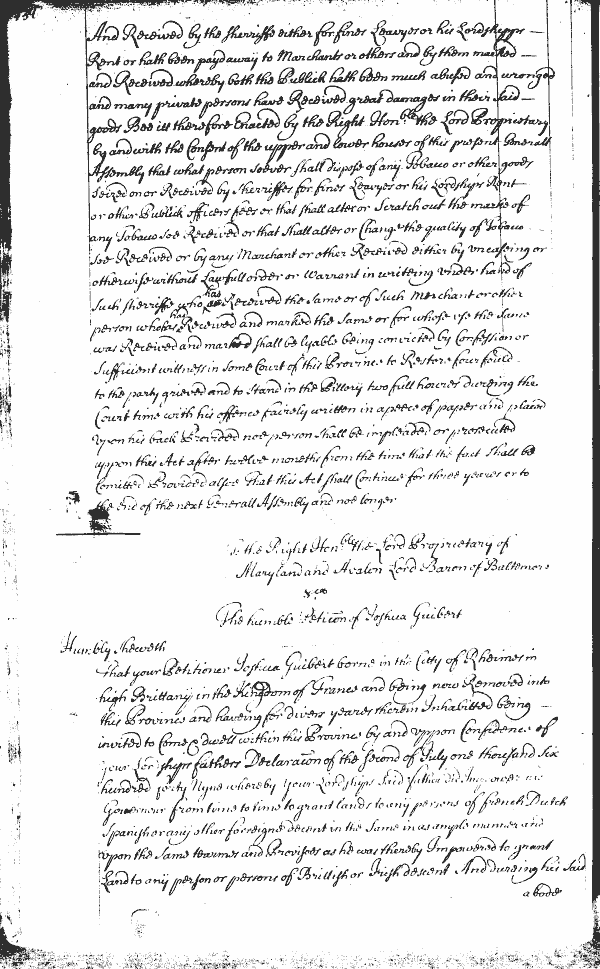 And Received by the Sherriffe either for fines Leavyes or his Lordshipps
Rent or hath been payd away to Merchants or others and by them marked
and Received whereby both the Publick hath been much abused and wronged
and many private persons have Received great damages in their Said
goods Bee itt therefore Enacted by the Right Honble the Lord Proprietary
by and with the Consent of the upper and lower houses of this present Generall
Assembly that what person soever shall dispose of any Tobacco or other goods
Seized on or Received by Sherriffes for fines Leavyes or his Lordships Rent
or other Publick officers fees or that shall alter or Scratch out the marke of
any Tobaco soe Received or that shall alter or Change the quality of Tobaco
soe Received or by any Merchant or other Received either by uncaseing or
otherwise without Lawfull order or Warrant in writeing under hand of
Such Sherriffe who has Received the same or of Such Merchant or other
person who has Received and marked the Same or for whose use the same
was Received and marked shall be lyable being convicted by Confession or
Sufficient wittness in some Court of this Province to Restore four feild
to the party grieved and to Stand in the Pillory two full houres dureing the
Court time with his offence fairely written in a peece of paper and placed
upon his back Provided noe person shall be impleaded or prosecuted
uppon this Act after twelve moneths from the time that the fact shall be
Comitted Provided alsoe That this Act shall Continue for three yeares or to
the end of the next Generall Assembly and noe longer
To the Right Honble the Lord Proprietary of
Maryland and Avalon Lord Baron of Baltemore
&ca
The humble Peticon of Joshua Guibert
Humbly Sheweth
That your Petitioner Joshua Guibert borne in the Citty of Rhoimes in
high Brittany in the Kingdom of France and being now Removed into
this Province and haveing for divers yeares therein Inhabitted being
invited to Come & dwell within this Province by and uppon Confidence of
your Lordships fathers Declaracon of the Second of July one thousand Six
hundred forty Nyne whereby your Lordships Said father did Impower his
Governour from time to time to grant lands to any persons of french Dutch
Spanish or any other forreigne decent in the Same in as ample manner and
upon the Same tearmes and Provisoes as he was thereby Impowered to grant
Land to any person or persons of Brittish or Irish descent And dureing his Said
abode